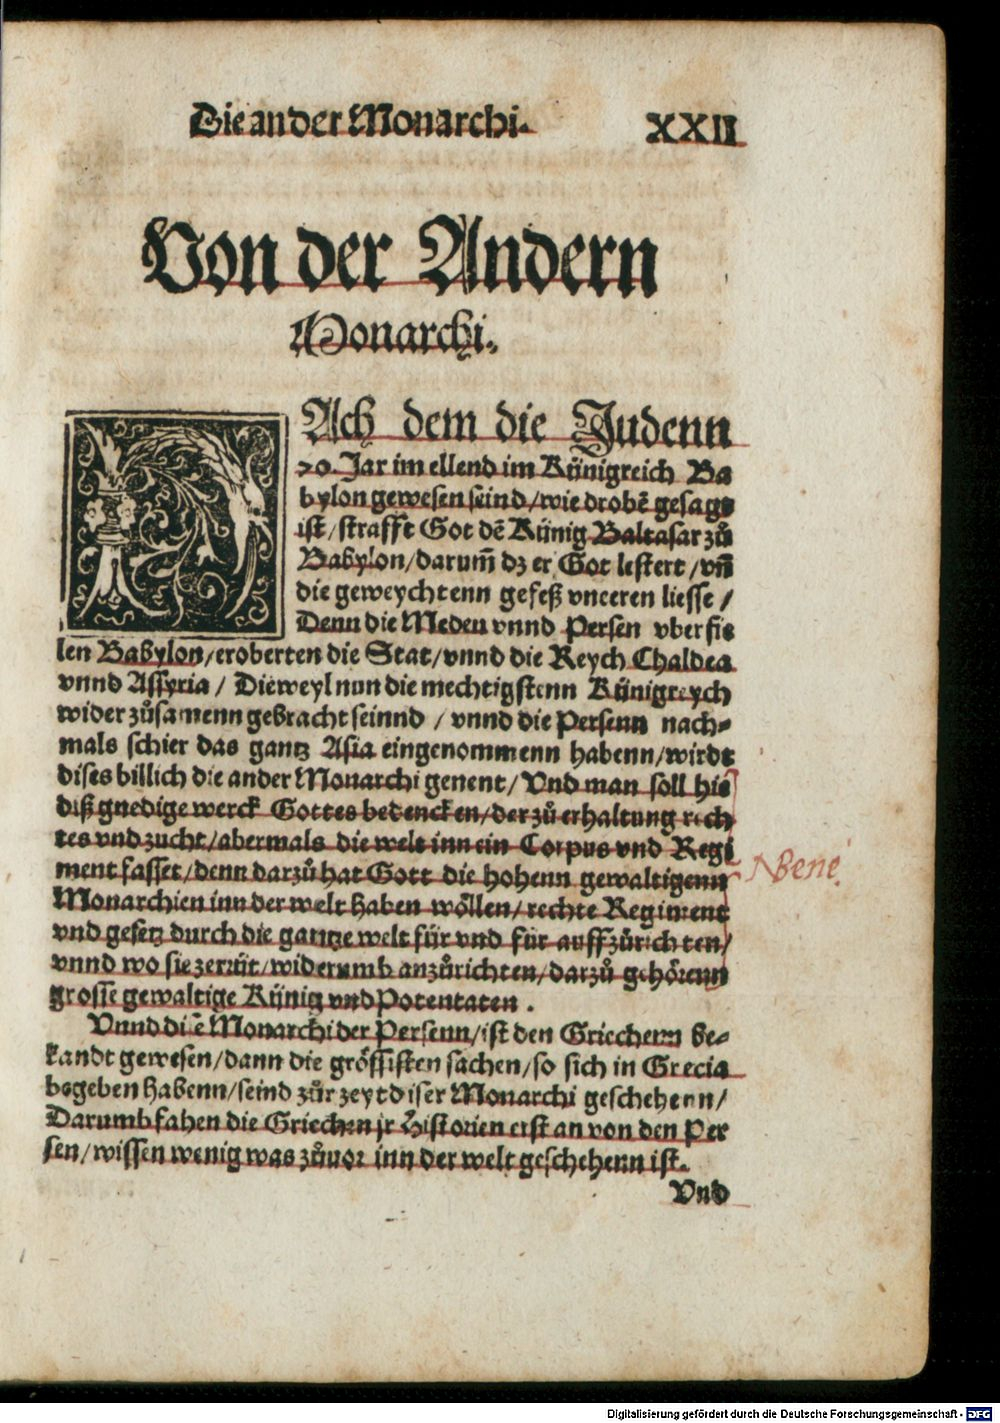 Die ander Monarchi.
XXII
Von der Andern
Monarchi.
NAch dem die Judenn
70. Jar im ellend im Künigreich Ba
bylon gewesen seind/wie drobē gesagt
ist/straffet Got dē Künig Baltasar zů
Babylon/darum̄ dz er Got lestert/vn̄
die geweychtenn gefeß vneeren liesse/
Denn die Meden vnnd Persen vberfie
len Babylon/eroberten die Stat/vnnd die Reych Chaldea
vnnd Assyria/ Dieweyl nun die mechtigstenn Künigreych
wider zůsamenn gebracht seinnd / vnnd die Persenn nach-
mals schier das gantz Asia eingenommenn habenn/wirdt
dises billich die ander Monarchi genent/ Vnd man soll hie
diß gnedige werck Gottes bedencken/der zů erhaltung rech
tes vnd zucht/abermals die welt inn ein Corpus vnd Regi
ment fasset/denn darzů hat Gott die hohenn gewaltigenn
Monarchien inn der welt haben wöllen/rechte Regiment
vnd gesetz durch die gantze welt für vnd für auffzůrichten/
vnnd wo sie zerrüt/widerumb anzůrichten/darzů gehörenn
grosse gewaltige Künig vnd Potentaten .
Vnnd disē Monarchi der Persenn/ist den Griechern be-
kandt gewesen/dann die grössisten sachen/so sich in Grecia
begeben habenn/seind zůr zeyt diser Monarchi geschehenn/
Darumb fahen die Griechen jr Historien erst an von den Per
sen/wissen wenig was zůuor inn der welt geschehenn ist.
Vnd
NBene.
Digitalisierung gefördert durch die Deutsche Forschungsgemeinschaft - DFG